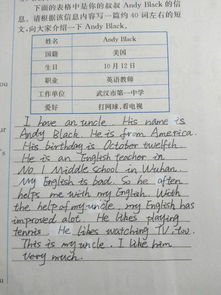 下面的表格中是你的叔叔 Andy Black 的信
息。请根据该信息内容写一篇约 40 词左右的短
文,向大家介绍一下 Andy Black。
姓名 Andy Black
国籍 美国
生日 10 月 12 日
职业 英语教师
工作单位 武汉市第一中学
爱好 打网球,看电视
I have an uncle. His name is
Andy Black. He is from America.
His birthday is October twelfth.
He is an English teacher in
No. 1 Middle school in Wuhan.
My English is bad. So he often
helps me with my English. With
the help of my uncle, my English has
improved alot. He likes playing
tennis. He likes watching TV, too.
This is my uncle. I like him
very much.